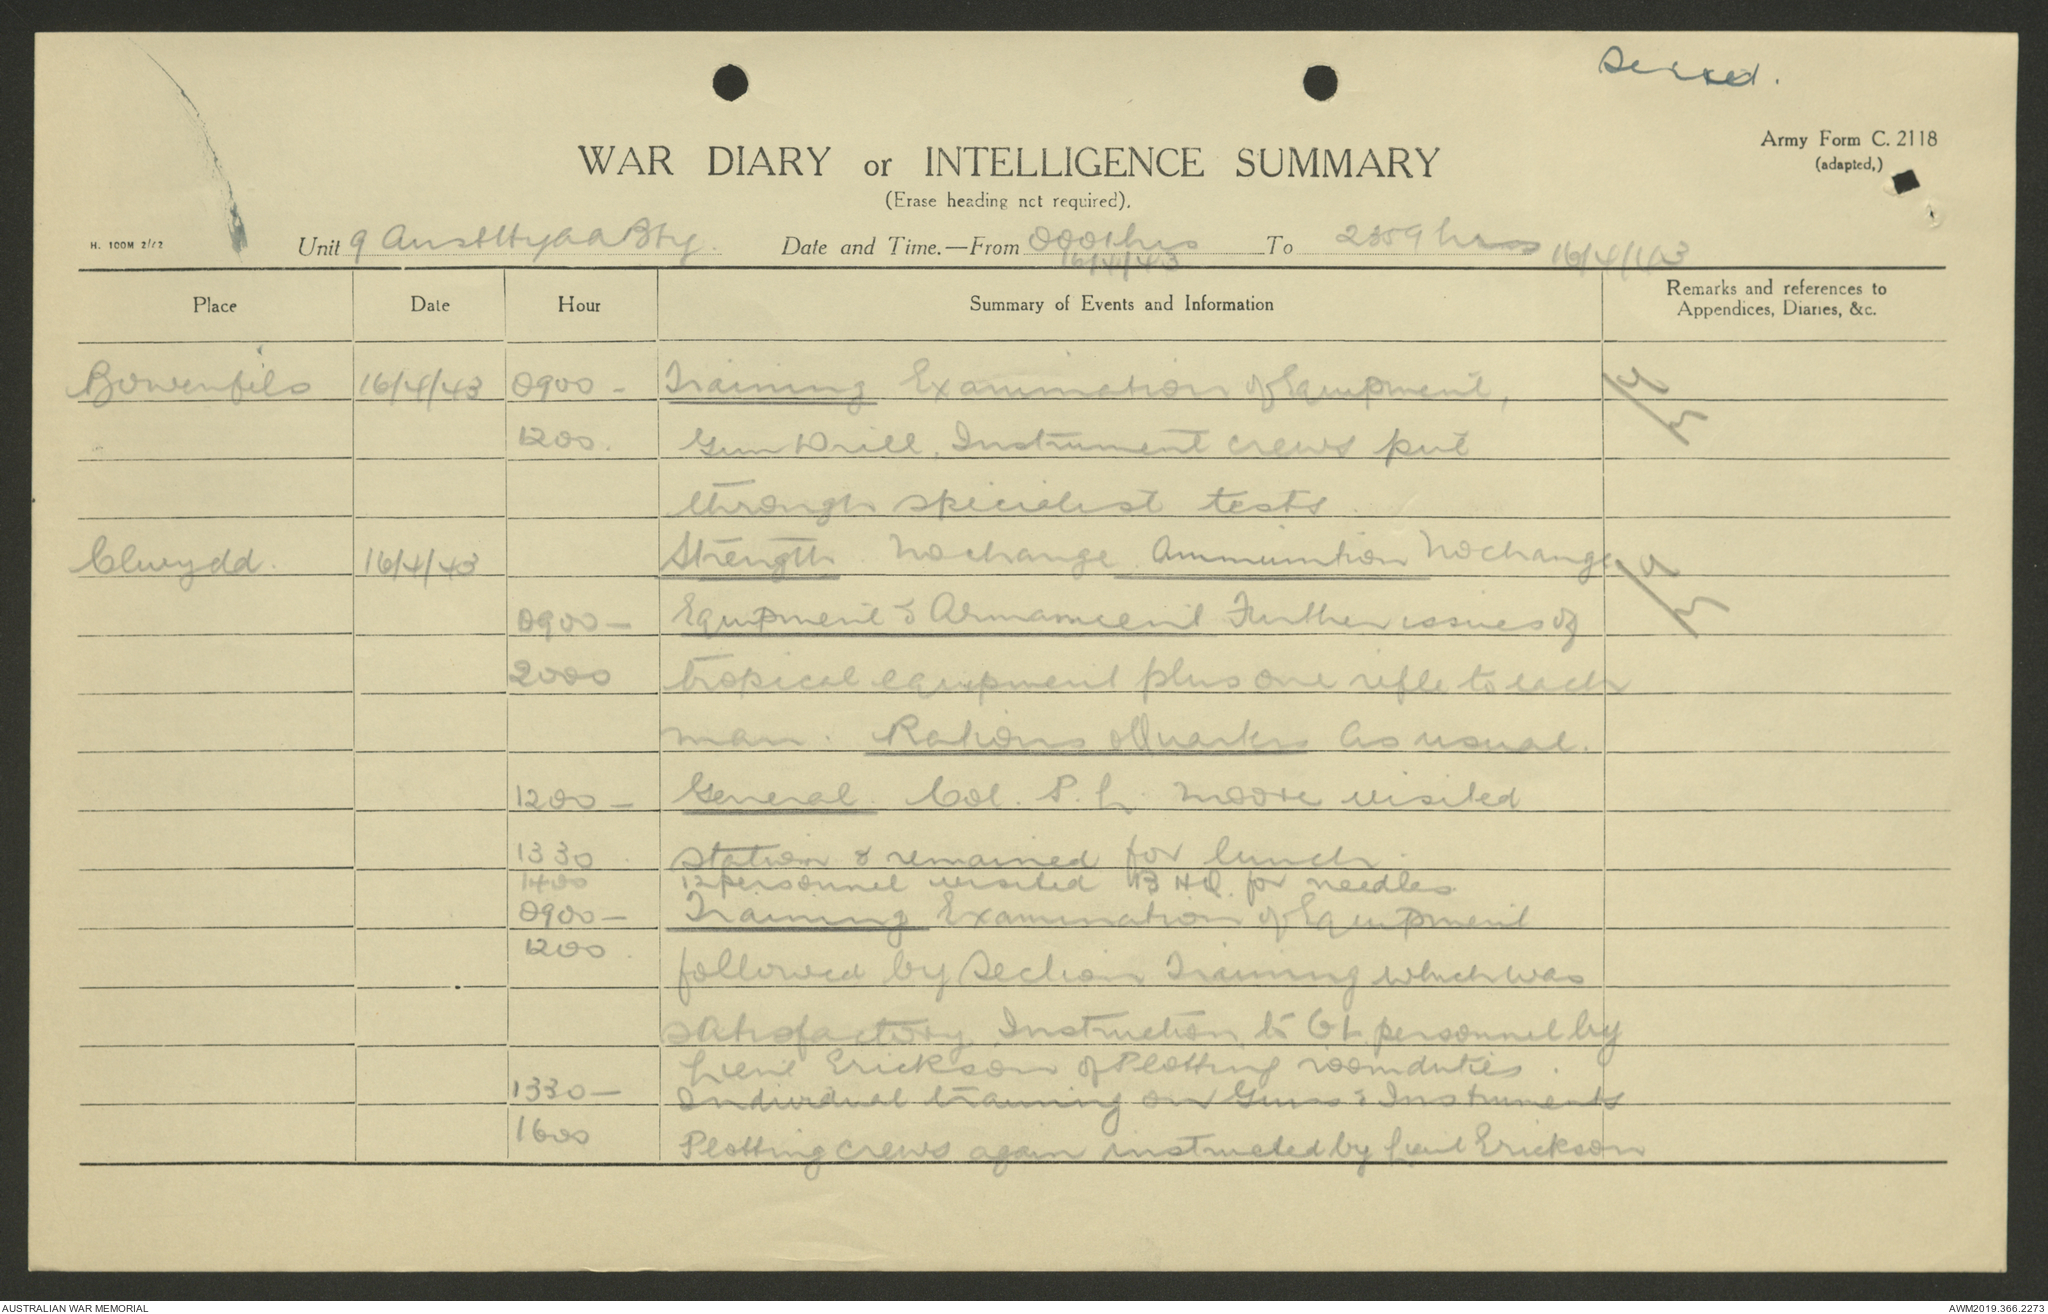 WAR DIARY or INTELLIGENCE SUMMARY
(Erase heading not required).
Army Form C. 2118
(adapted,)
H. 100M 2/42
Unit 9 Aust Hy AA Bty. Date and Time.—From 0001 hrs To 2359 hrs 16/4/43
16/4/43
Place Date Hour Summary of Events and Information Remarks and references to
Appendices, Diaries, &c.
Bowenfels 16/4/43 0900 - Training Examination of Equipment,
1200. Gun Drill. Instrument crews put
through specialist tests.
Clwydd. 16/4/43 Strength No change Ammunition No change
0900 - Equipment & Armament Further issues of
2000 tropical equipment plus one rifle to each
man. Rations & Quarters As usual.
1200 - General. Col. P. L. Moore visited
1330 station & remained for lunch.
1400 12 personnel visited B.H.Q. for needles.
0900 - Training Examination of Equipment
1200. followed by Section Training which was
satisfactory. Instruction to GL personnel by
Lieut Erickson of Plotting room duties.
1330 - Individual training on Guns & Instruments
1600 Plotting crews again instructed by Lieut Erickson
AUSTRALIAN WAR MEMORIAL
AWM2019.366.2273